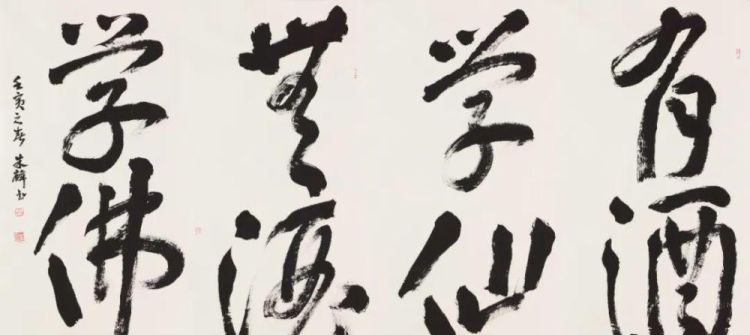 有酒
学仙
無酒
学佛
壬寅之春 朱 书